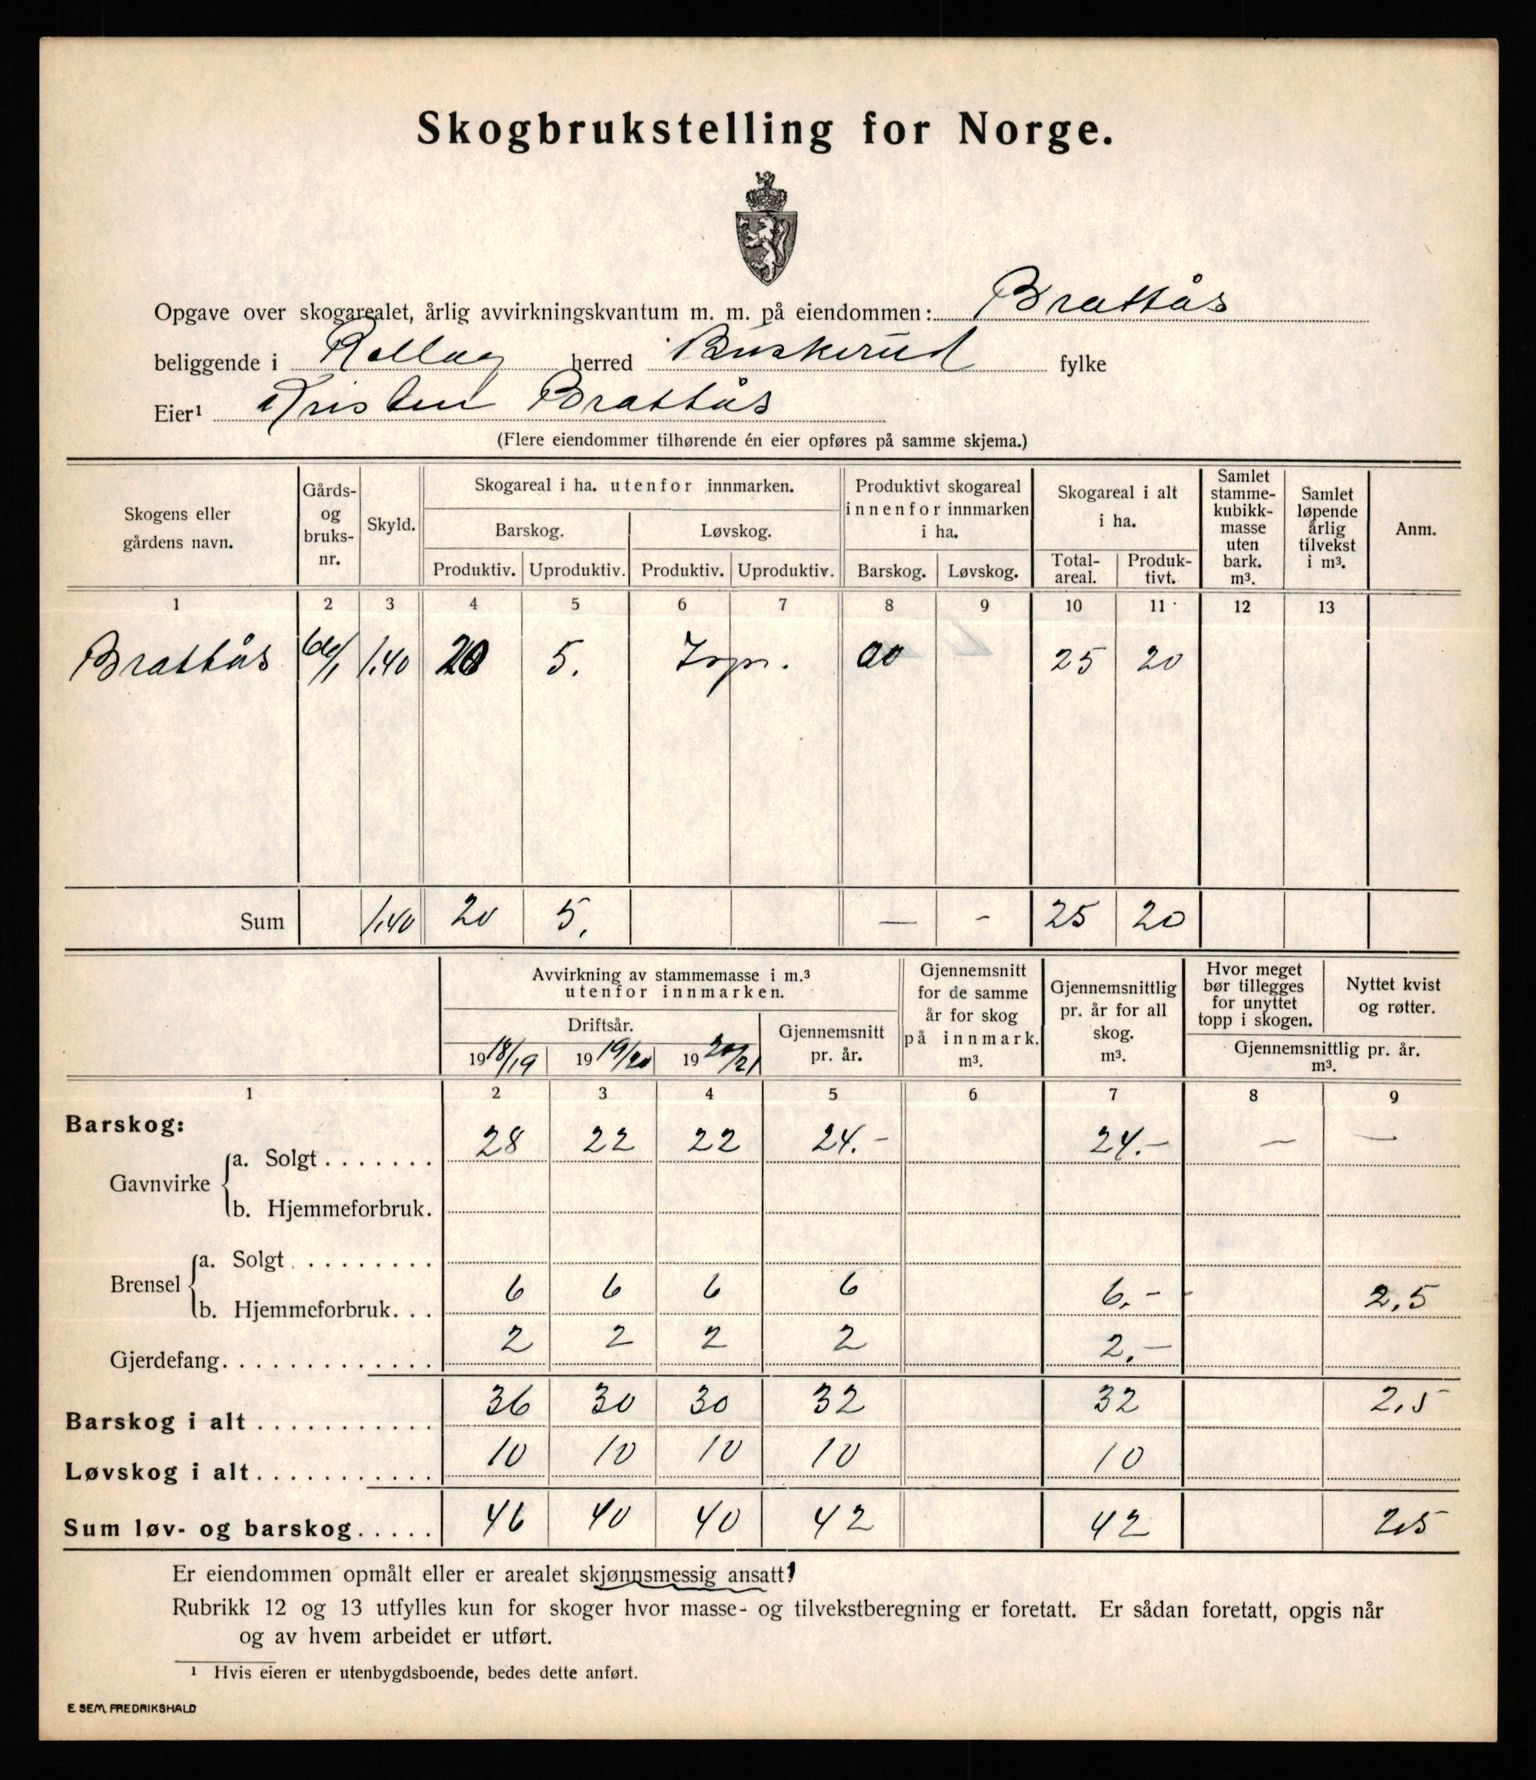 Skogbrukstelling for Norge.
Opgave over skogarealet, årlig avvirkningskvantum m. m. på eiendommen: Brattås
beliggende i Rollag herred Buskerud fylke
Eier¹ Kristen Brattås
(Flere eiendommer tilhørende én eier opføres på samme skjema.)
Skogens eller gårdens navn. Gårds- og bruks- nr. Skyld. Skogareal i ha. utenfor innmarken. Produktivt skogareal innenfor innmarken i ha. Skogareal i alt i ha. Samlet stamme- kubikk- masse uten bark. m³. Samlet løpende årlig tilvekst i m³. Anm.
Barskog. Løvskog.
Produktiv. Uproduktiv. Produktiv. Uproduktiv. Barskog. Løvskog. Total- areal. Produk- tivt.
1 2 3 4 5 6 7 8 9 10 11 12 13
Brattås 66/1 1.40 20 5. 25 20
Sum 1.40 20 5. — - 25 20
Avvirkning av stammemasse i m.³ utenfor innmarken. Gjennemsnitt for de samme år for skog på innmark. m³. Gjennemsnittlig pr. år for all skog. m³. Hvor meget bør tillegges for unyttet topp i skogen. Nyttet kvist og røtter.
Driftsår. Gjennemsnitt pr. år. Gjennemsnittlig pr. år. m³.
1918/19 1919/20 1920/21
1 2 3 4 5 6 7 8 9
Barskog:
Gavnvirke a. Solgt . . . . . . . 28 22 22 24.- 24.- — —
b. Hjemmeforbruk.
Brensel a. Solgt . . . . . . . . .
b. Hjemmeforbruk. . . 6 6 6 6 6.- - 2,5
Gjerdefang. . . . . . . . . . . . . . 2 2 2 2 2.-
Barskog i alt . . . . . . . . . . . 36 30 30 32 32 2,5
Løvskog i alt . . . . . . . . . . . 10 10 10 10 10
Sum løv- og barskog . . . . . 46 40 40 42 42 2,5
Er eiendommen opmålt eller er arealet skjønnsmessig ansatt?
Rubrikk 12 og 13 utfylles kun for skoger hvor masse- og tilvekstberegning er foretatt. Er sådan foretatt, opgis når
og av hvem arbeidet er utført.
¹ Hvis eieren er utenbygdsboende, bedes dette anført.
E. SEM, FREDRIKSHALD